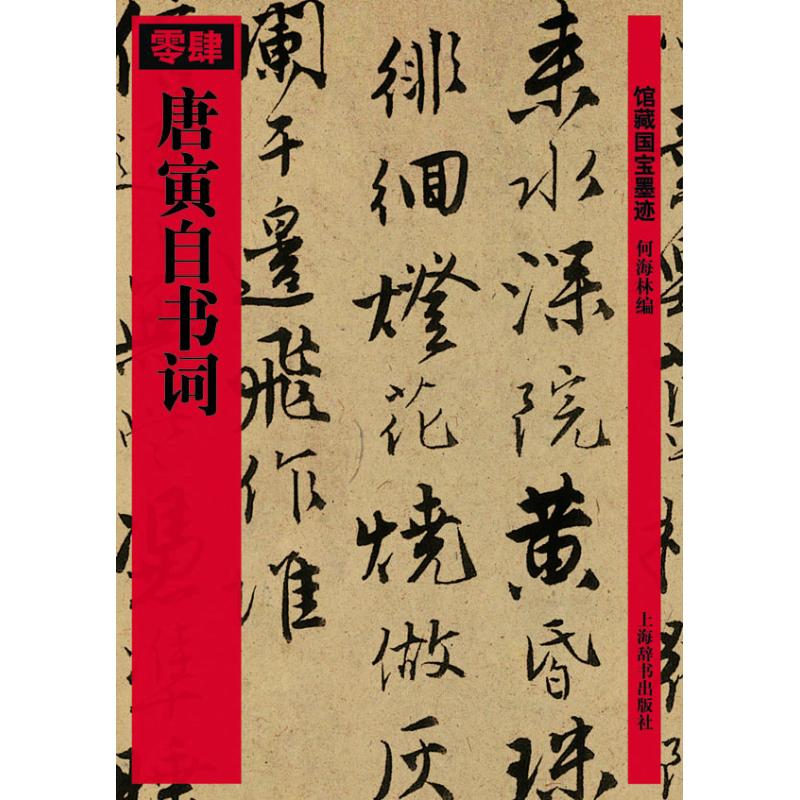 零肆
唐寅自书词
馆藏国宝墨迹
何海林编
上海辞书出版社
来水深院黄昏珠
徘徊燈花燒做灰
欄干邊飛作准